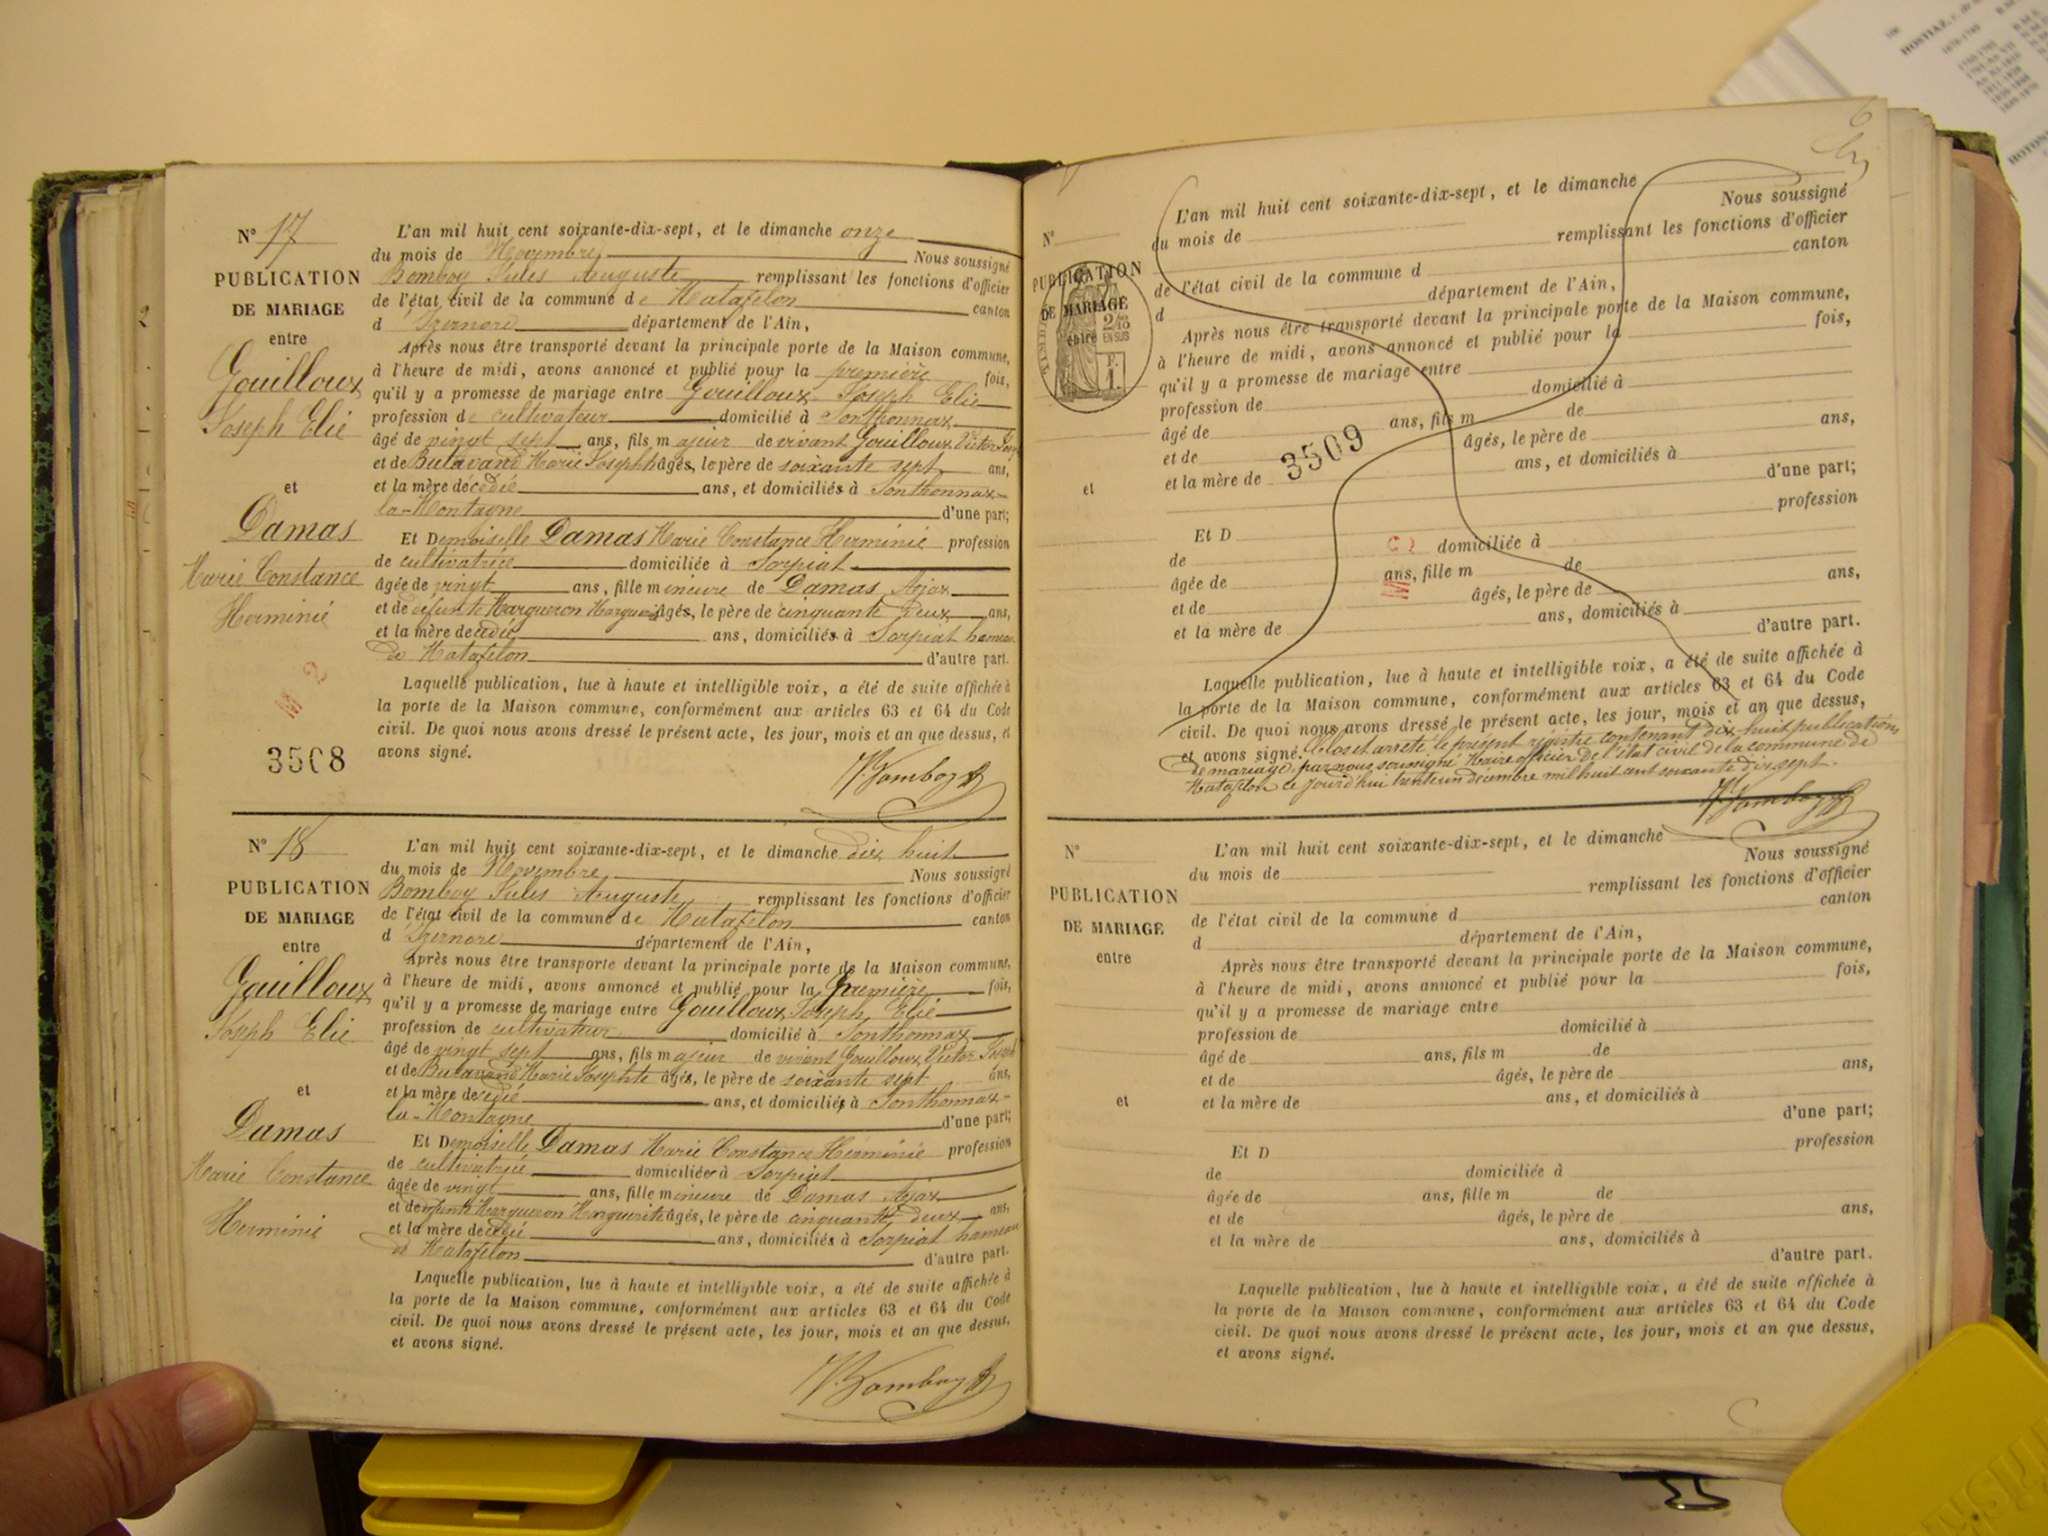 N° 17
PUBLICATION
DE MARIAGE
entre
Gouilloux
Joseph Elie
et
Damas
Marie Constance
Herminie
M 2
3508
L'an mil huit cent soixante-dix-sept, et le dimanche onze
du mois de Novembre Nous soussigné
Bomboy Jules Auguste remplissant les fonctions d'officier
de l'état civil de la commune de Matafelon canton
d'Izernore département de l'Ain,
Après nous être transporté devant la principale porte de la Maison commune,
à l'heure de midi, avons annoncé et publié pour la première fois,
qu'il y a promesse de mariage entre Gouilloux Joseph Elie
profession de cultivateur domicilié à Sonthonnax
âgé de vingt sept ans, fils majeur de vivant Gouilloux Victor
et de Butavand Marie Josephte âgés, le père de soixante sept ans,
et la mère décédée ans, et domiciliés à Sonthonnax-
la-Montagne d'une part;
Et Demoiselle Damas Marie Constance Herminie profession
de cultivatrice domiciliée à Sorpiat
âgée de vingt ans, fille mineure de Damas Ajax
et de défunte Margueron Marguerite âgés, le père de cinquante deux ans,
et la mère décédée ans, domiciliés à Sorpiat hameau
de Matafelon d'autre part.
Laquelle publication, lue à haute et intelligible voix, a été de suite affichée à
la porte de la Maison commune, conformément aux articles 63 et 64 du Code
civil. De quoi nous avons dressé le présent acte, les jour, mois et an que dessus, et
avons signé.
Bomboy
N° 18
PUBLICATION
DE MARIAGE
entre
Gouilloux
Joseph Elie
et
Damas
Marie Constance
Herminie
L'an mil huit cent soixante-dix-sept, et le dimanche dix huit
du mois de Novembre Nous soussigné
Bomboy Jules Auguste remplissant les fonctions d'officier
de l'état civil de la commune de Matafelon canton
d'Izernore département de l'Ain,
Après nous être transporté devant la principale porte de la Maison commune,
à l'heure de midi, avons annoncé et publié pour la première fois,
qu'il y a promesse de mariage entre Gouilloux Joseph Elie
profession de cultivateur domicilié à Sonthonnax
âgé de vingt sept ans, fils majeur de vivant Gouilloux Victor Joseph
et de Butavand Marie Josephte âgés, le père de soixante sept ans,
et la mère décédée ans, et domiciliés à Sonthonnax-
la-Montagne d'une part;
Et Demoiselle Damas Marie Constance Herminie profession
de cultivatrice domiciliée à Sorpiat
âgée de vingt ans, fille mineure de Damas Ajax
et de défunte Margueron Marguerite âgés, le père de cinquante deux ans,
et la mère décédée ans, domiciliés à Sorpiat hameau
de Matafelon d'autre part.
Laquelle publication, lue à haute et intelligible voix, a été de suite affichée à
la porte de la Maison commune, conformément aux articles 63 et 64 du Code
civil. De quoi nous avons dressé le présent acte, les jour, mois et an que dessus,
et avons signé.
Bomboy
6
N°
PUBLICATION
DE MARIAGE
entre
2/10
EN SUS
F.
1.
et
L'an mil huit cent soixante-dix-sept, et le dimanche
du mois de Nous soussigné
remplissant les fonctions d'officier
de l'état civil de la commune d canton
d département de l'Ain,
Après nous être transporté devant la principale porte de la Maison commune,
à l'heure de midi, avons annoncé et publié pour la fois,
qu'il y a promesse de mariage entre
profession de domicilié à
âgé de ans, fils m de
et de âgés, le père de ans,
3509
et la mère de ans, et domiciliés à
d'une part;
Et D profession
de domiciliée à
âgée de ans, fille m de
M
et de âgés, le père de ans,
et la mère de ans, domiciliés à
d'autre part.
Laquelle publication, lue à haute et intelligible voix, a été de suite affichée à
la porte de la Maison commune, conformément aux articles 63 et 64 du Code
civil. De quoi nous avons dressé le présent acte, les jour, mois et an que dessus,
et avons signé. Clos et arrêté le présent registre contenant dix huit publications
de mariage, par nous soussigné Maire officier de l'état civil de la commune de
Matafelon ce jourd'hui trente un décembre mil huit cent soixante dix sept.
Bomboy
N°
PUBLICATION
DE MARIAGE
entre
et
L'an mil huit cent soixante-dix-sept, et le dimanche
du mois de Nous soussigné
remplissant les fonctions d'officier
de l'état civil de la commune d canton
d département de l'Ain,
Après nous être transporté devant la principale porte de la Maison commune,
à l'heure de midi, avons annoncé et publié pour la fois,
qu'il y a promesse de mariage entre
profession de domicilié à
âgé de ans, fils m de
et de âgés, le père de ans,
et la mère de ans, et domiciliés à
d'une part;
Et D profession
de domiciliée à
âgée de ans, fille m de
et de âgés, le père de ans,
et la mère de ans, domiciliés à
d'autre part.
Laquelle publication, lue à haute et intelligible voix, a été de suite affichée à
la porte de la Maison commune, conformément aux articles 63 et 64 du Code
civil. De quoi nous avons dressé le présent acte, les jour, mois et an que dessus,
et avons signé.